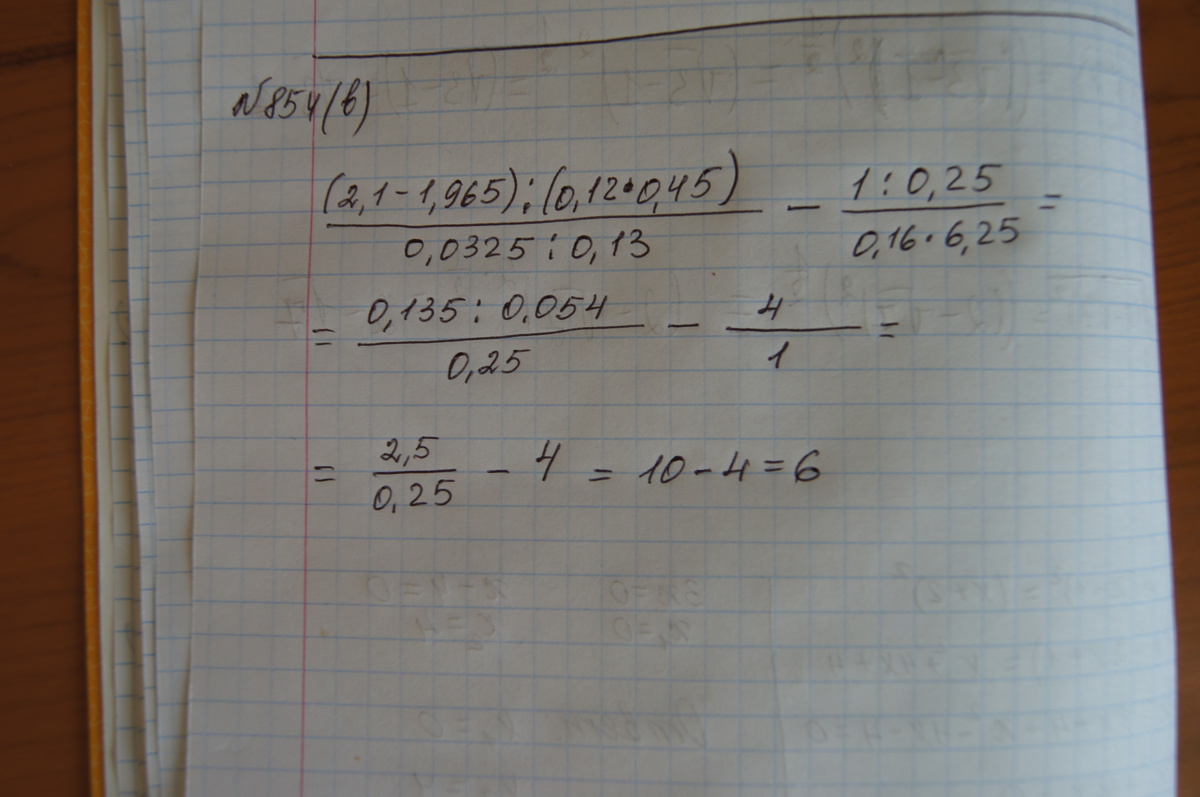 №854(в)
(2,1-1,965):(0,12·0,45) / 0,0325:0,13 - 1:0,25 / 0,16·6,25 =
= 0,135:0.054 / 0,25 - 4 / 1 =
= 2,5 / 0,25 - 4 = 10-4=6